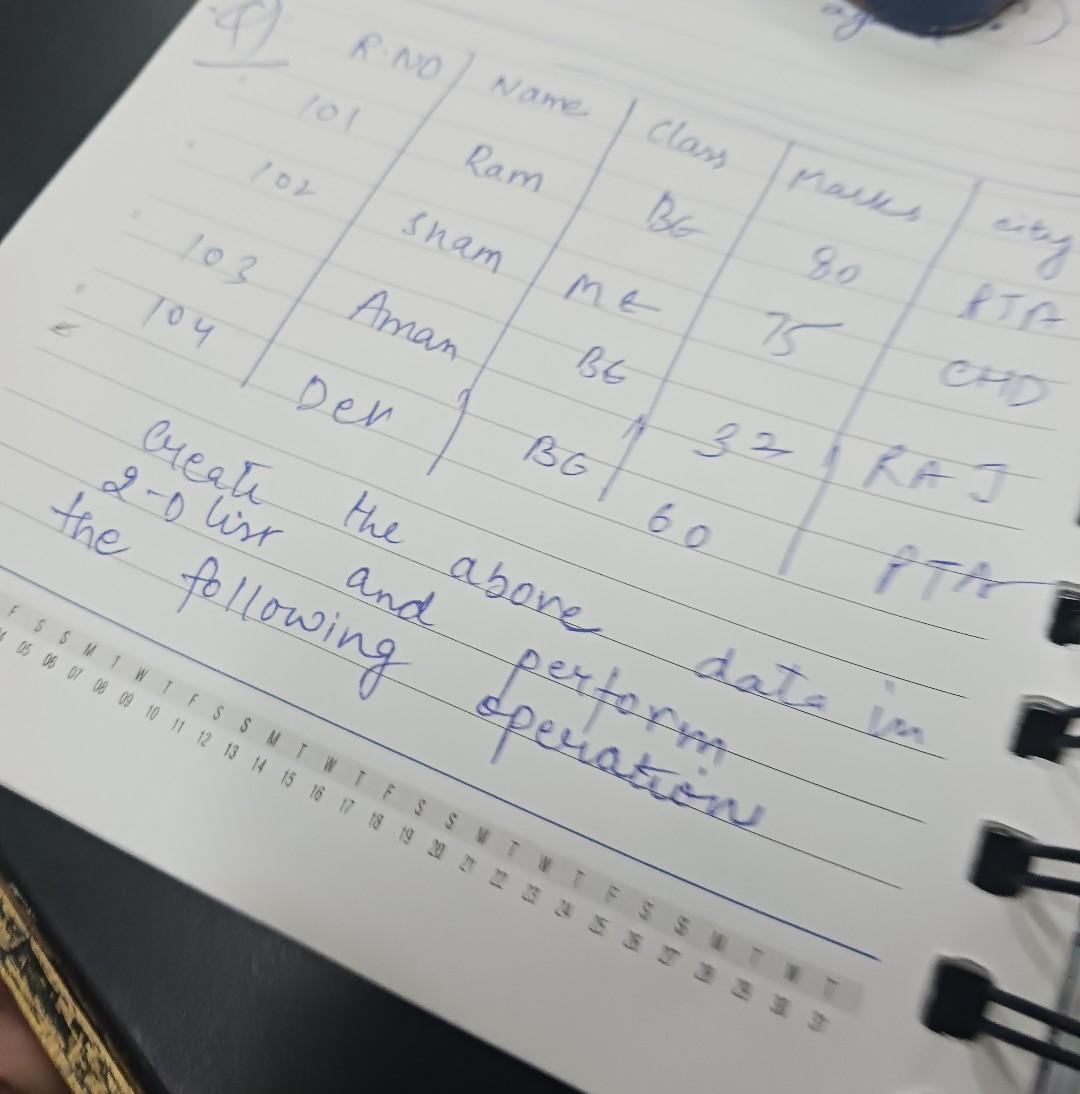 Q)
R.NO Name Class Marks city
101 Ram BG 80 PTA
102 Sham ME 75 CHD
103 Aman BG 32 RAJ
104 Dev BG 60 PTA
Create the above data in
2-D list and perform
the following operation
F S S M T W T F S S M T W T F S S M T W T F S S M T W T
05 06 07 08 09 10 11 12 13 14 15 16 17 18 19 20 21 22 23 24 25 26 27 28 29 30 31